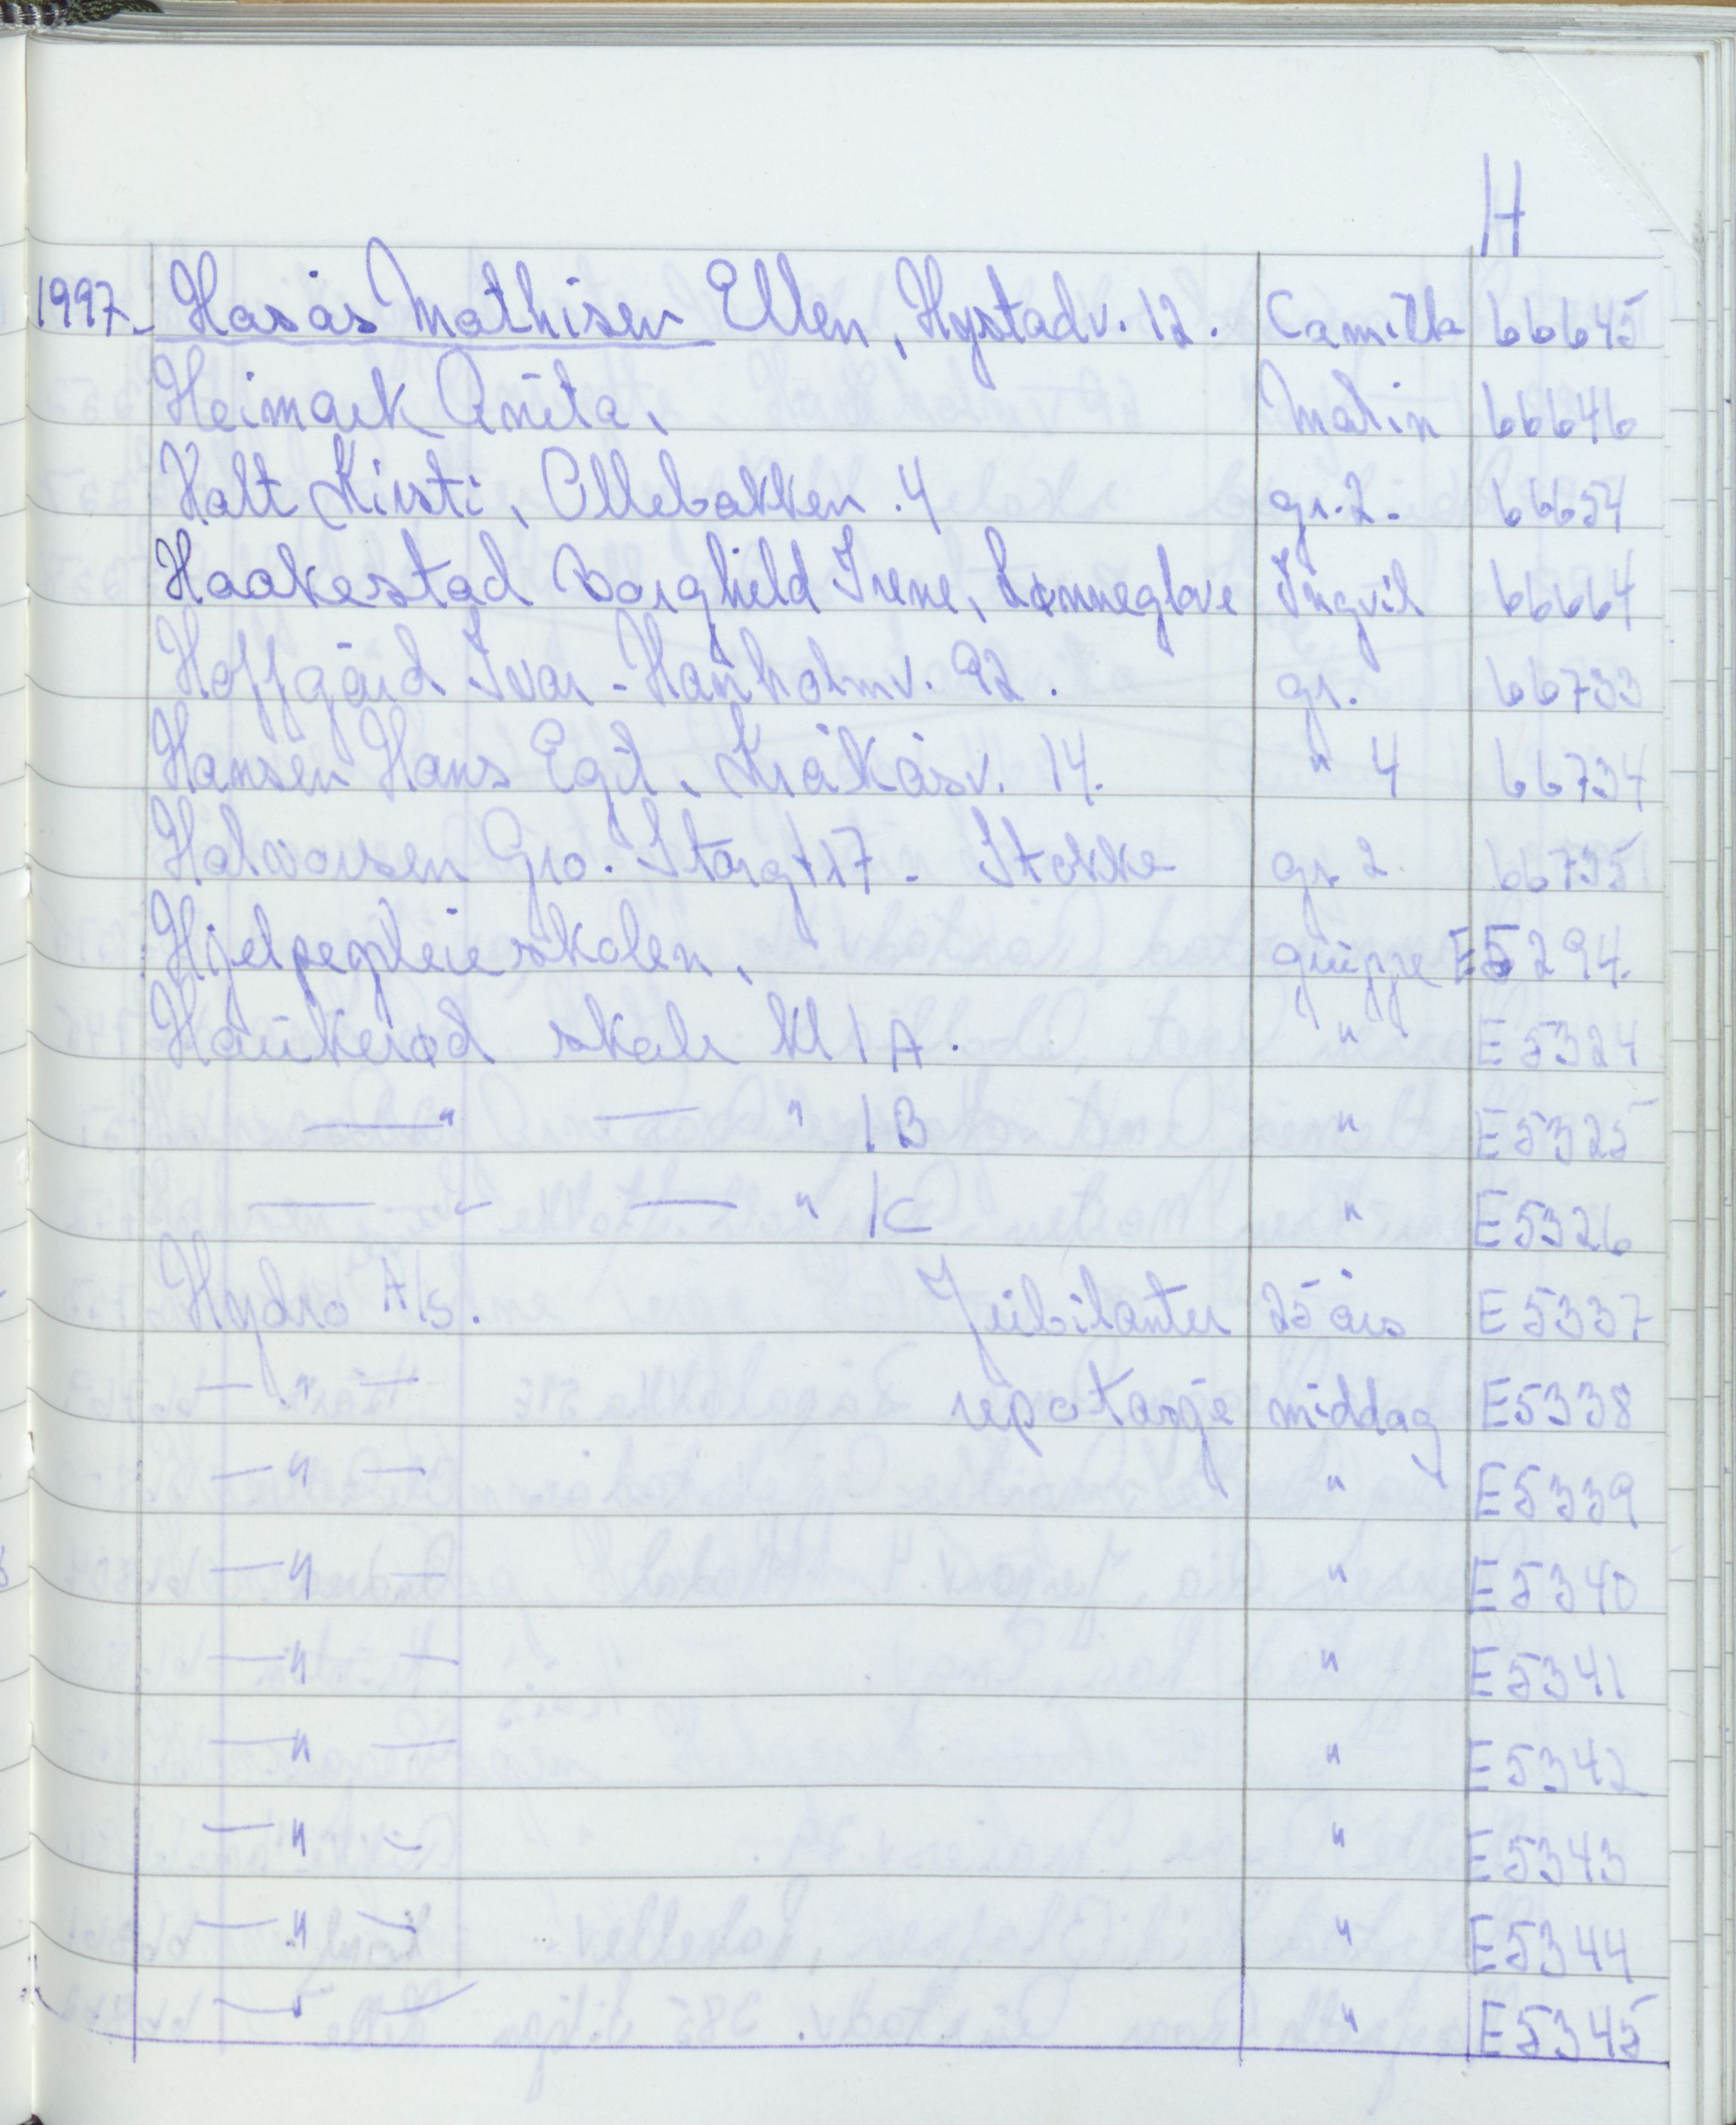 H
1997. Hasås Mathisen Ellen, Hystadv. 12. Camilla 66645
Heimark Anita, Malin 66646
Holt Kirsti, Ollebakken. 4 gr. 2. 66654
Haakestad Borghild Irene, Lønneglove Ingvil 66664
Hoffgård Ivar - Hanholmv. 92. gr. 66733
Hansen Hans Egil, Kråkåsv. 14. " 4 66734
Halvorsen Gro. Storgt 17 - Stokke gr. 2. 66735
Hjelpepleieskolen, gruppe E5294.
Haukerød skole kl 1A. " E5324
— " — " 1B " E5325
— " — " 1C " E5326
Hydro A/S. Jubilanter 25 års E5337
— " — repotasje middag E5338
— " — " E5339
— " — " E5340
— " — " E5341
— " — " E5342
— " — " E5343
— " — " E5344
— " — " E5345